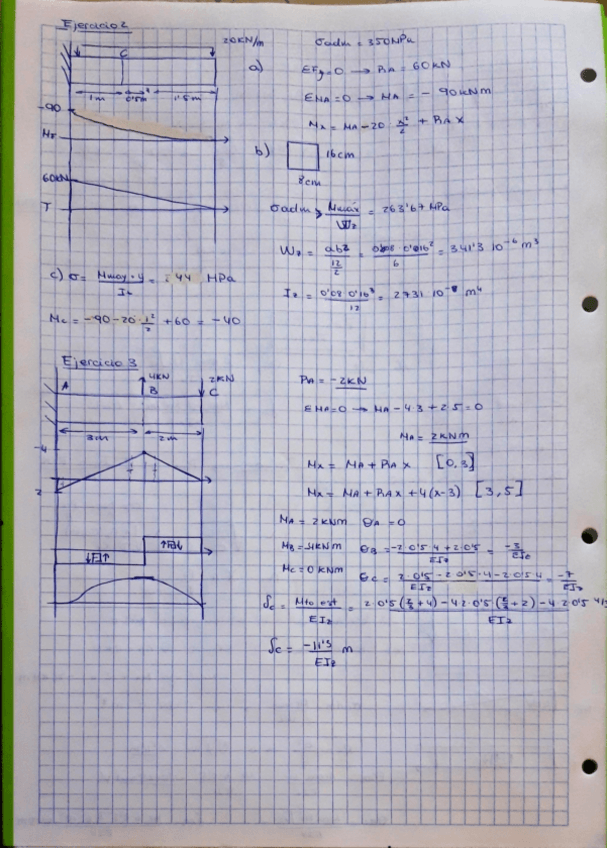 Ejercicio 2
20KN/m
C
1m 0'5m 1'5m
-90
MF
60KN
T
σadm = 350MPa
a) ΣFy=0 → RA = 60KN
ΣMA=0 → MA = - 90KNm
Mx = MA-20 · x²/2 + RA X
b) 16cm
8cm
σadm > Mmáx/Wz = 263'67 MPa
Wz = ab²/12/2 = 0'08 · 0'16²/6 = 341'3 10⁻⁶ m³
Iz = 0'08 0'16³/12 = 2731 10⁻⁸ m⁴
c) σ = Mmax · y/Iz = 44 MPa
Mc = -90-20·1²/2 +60 = -40
Ejercicio 3
A 4KN B 2KN C
3m 2m
-4
2
RA = -2KN
ΣMA=0 → MA - 4·3 + 2·5=0
MA = 2KNm
Mx = MA + RA X [0,3]
Mx = MA + RAX + 4(x-3) [3,5]
MA = 2KNm θA = 0
MB = -4KNm θB = -2·0'5·4+2·0'5/EIz = -3/EIz
Mc = 0KNm θc = 2·0'5-2·0'5·4-2·0'5·4/EIz = -7/EIz
δc = Mto est/EIz
δc = -11'3/EIz m